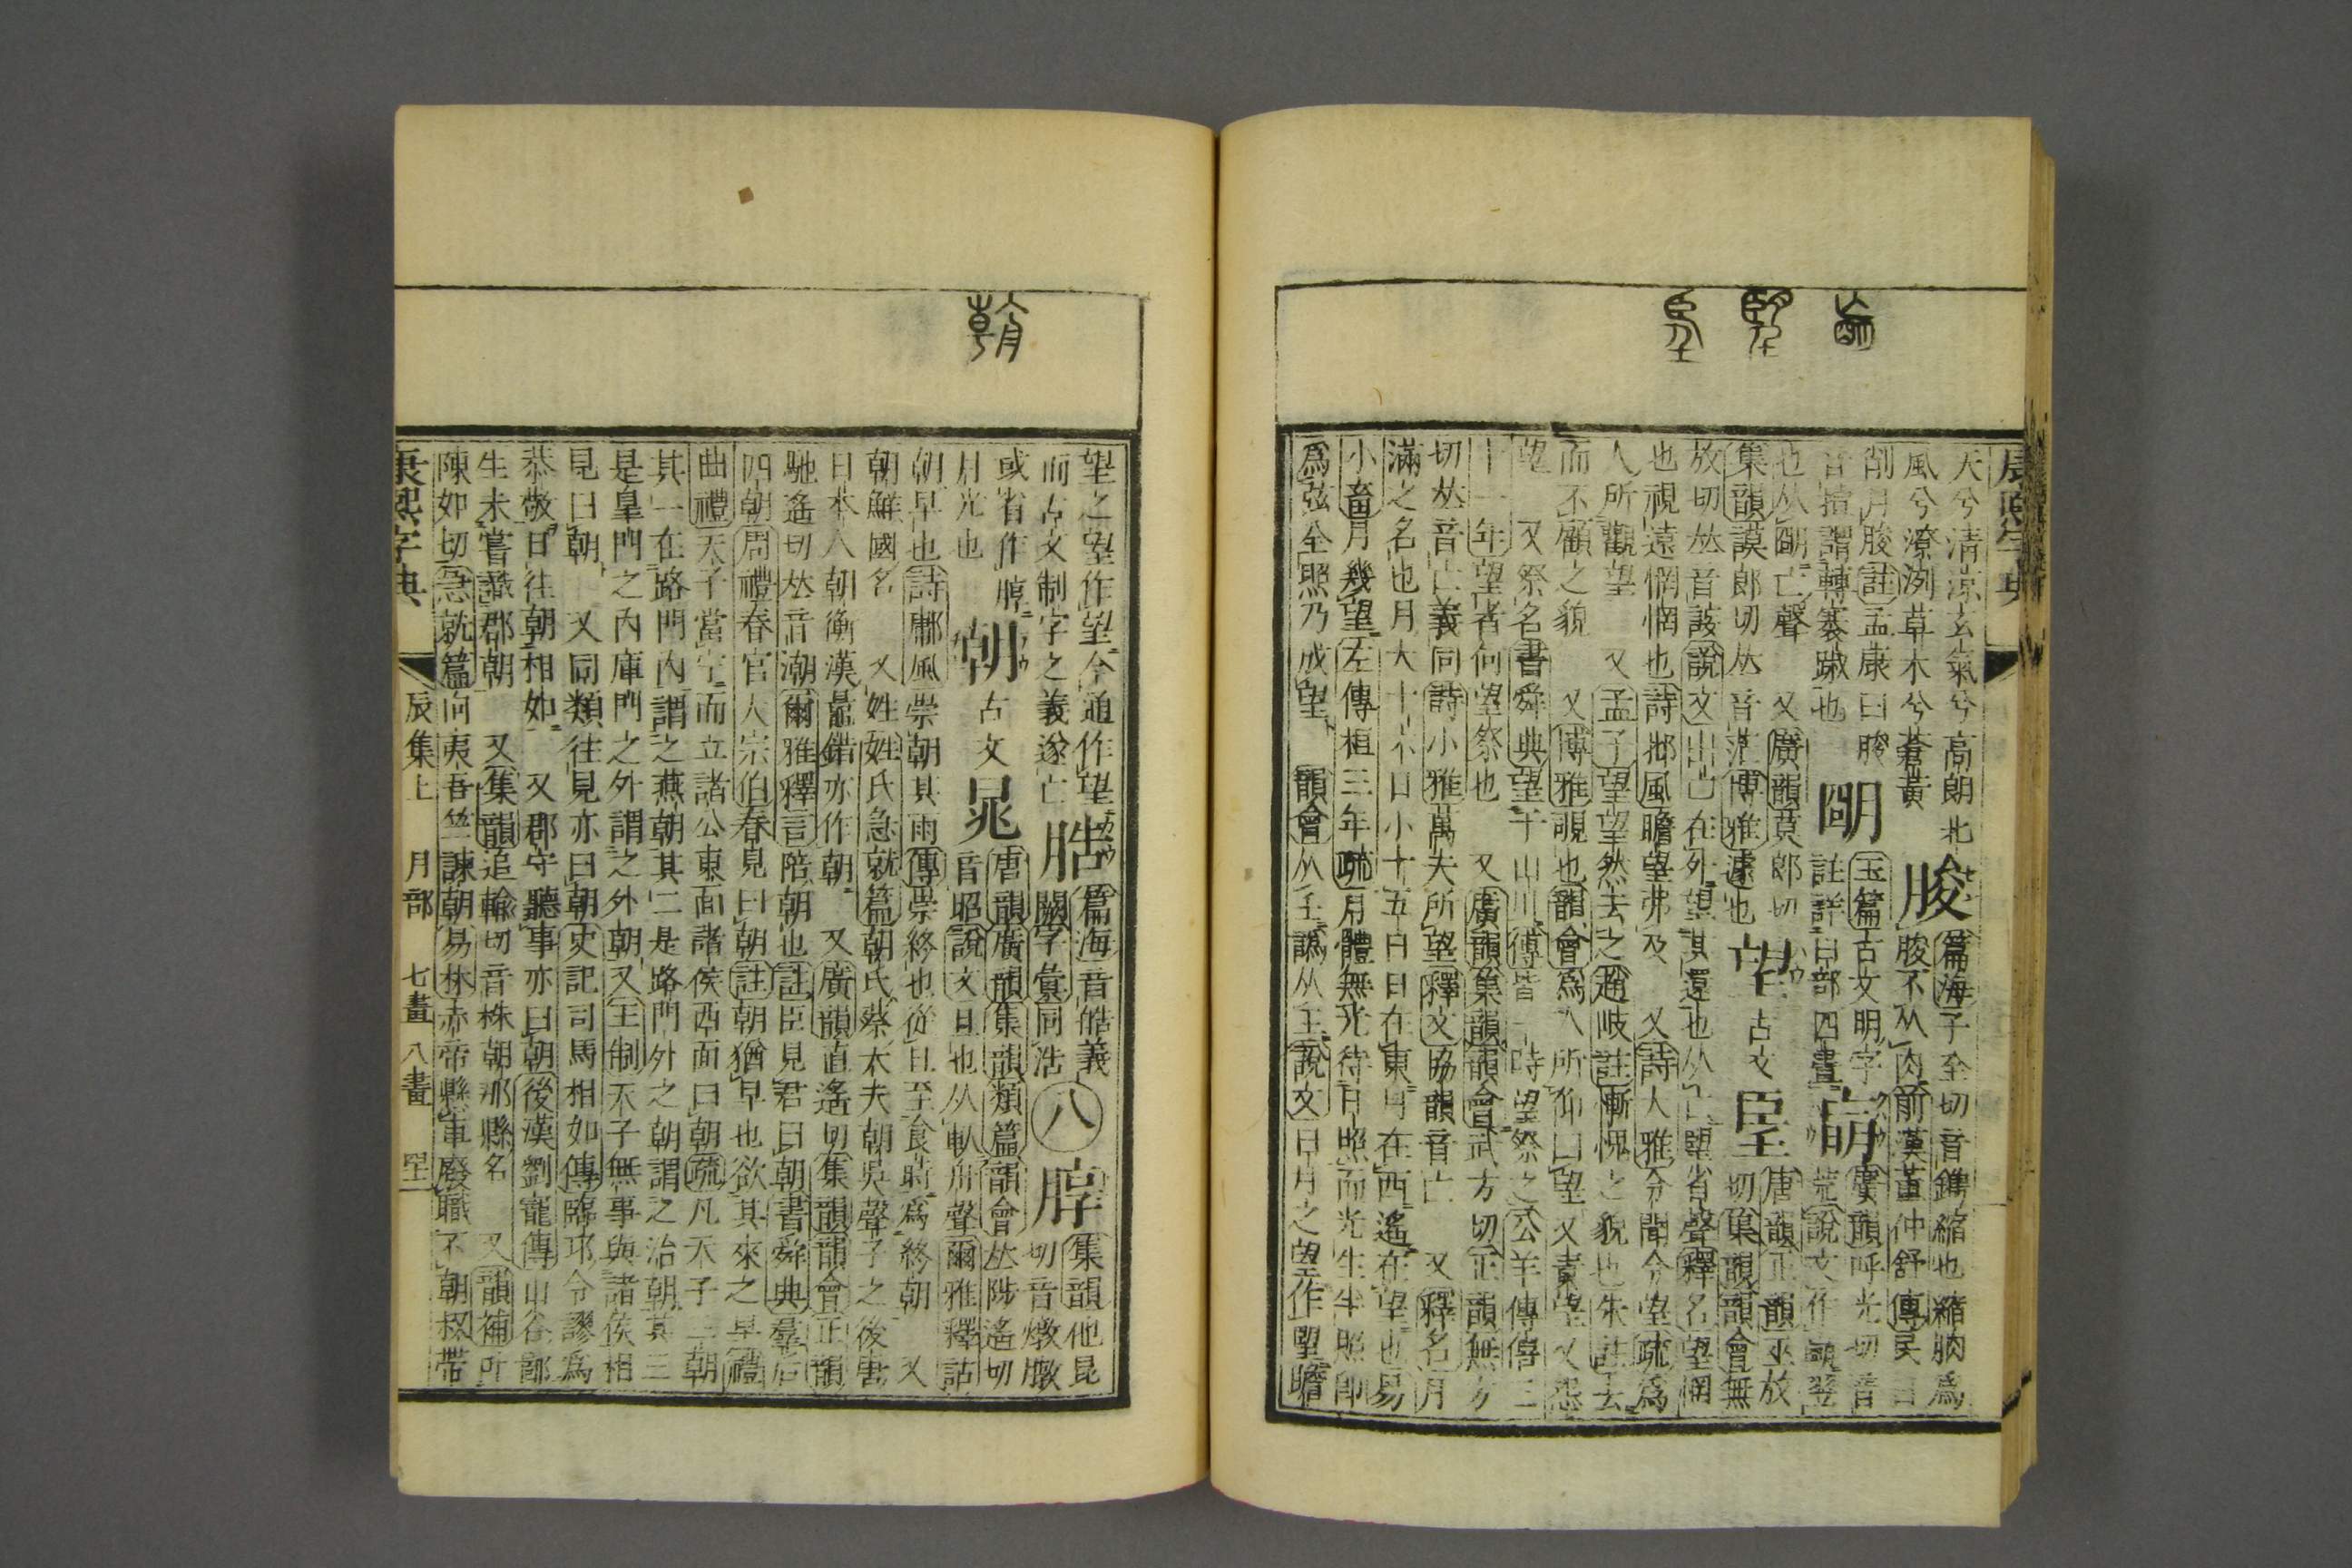 康熙字典
天兮清涼玄氣兮高朗北
風兮潦洌草木兮蒼黃
朘
篇海子全切音鐫縮也縮朒爲
朘不从肉前漢董仲舒傳民日
削月朘註孟康曰朘
音揎謂轉褰踧也
朙
玉篇古文明字
註詳日部四畫
朚
廣韻呼光切音
荒說文作朚翌
也从朙亡聲 又廣韻莫郎切
集韻謨郎切𠀤音茫博雅遽也
望
古文
𦣠
唐韻正韻巫放
切集韻韻會無
放切𠀤音䛃說文出亡在外望其還也从亡朢省聲釋名望惘
也視遠惘惘也詩邶風瞻望弗及 又詩大雅令聞令望疏爲
人所觀望 又孟子望望然去之趙岐註慚愧之貌也朱註去
而不顧之貌 又博雅覗也韻會爲人所仰曰望又責望又怨
望 又祭名書舜典望于山川傳皆一時望祭之公羊傳僖三
十一年望者何望祭也 又廣韻集韻韻會武方切正韻無方
切𠀤音亡義同詩小雅萬夫所望釋文協韻音亡 又釋名月
滿之名也月大十六日小十五日日在東月在西遙在望也易
小畜月幾望左傳桓三年疏月體無光待日照而光生半照卽
爲弦全照乃成望 韻會从壬譌从王說文日月之望作朢瞻
望之望作望今通作望
而古文制字之義遂亡
䏆
篇海音皓義
闕字彙同浩
八
朜
集韻他昆
切音燉朜
或省作朜
月光也
朝
古文
晁
唐韻廣韻集韻類篇韻會𠀤陟遙切
音昭說文旦也从倝舟聲爾雅釋詁
朝早也詩鄘風崇朝其雨傳崇終也從旦至食時爲終朝 又
朝鮮國名 又姓姓氏急就篇朝氏蔡大夫朝吳聲子之後唐
日本人朝衡漢鼂錯亦作朝 又廣韻直遙切集韻韻會正韻
馳遙切𠀤音潮爾雅釋言陪朝也註臣見君曰朝書舜典羣后
四朝周禮春官大宗伯春見曰朝註朝猶早也欲其來之早禮
曲禮天子當宁而立諸公東面諸侯西面曰朝疏凡天子三朝
其一在路門內謂之燕朝其二是路門外之朝謂之治朝其三
是皇門之內庫門之外謂之外朝又王制天子無事與諸侯相
見曰朝 又同類往見亦曰朝史記司馬相如傳臨邛令謬爲
恭敬日往朝相如 又郡守聽事亦曰朝後漢劉寵傳山谷鄙
生未嘗識郡朝 又集韻追輸切音株朝那縣名 又韻補所
陳如切急就篇向夷吾竺諫朝易林赤帝縣車廢職不朝叔帶
康熙字典 辰集上 月部 七畫 八畫